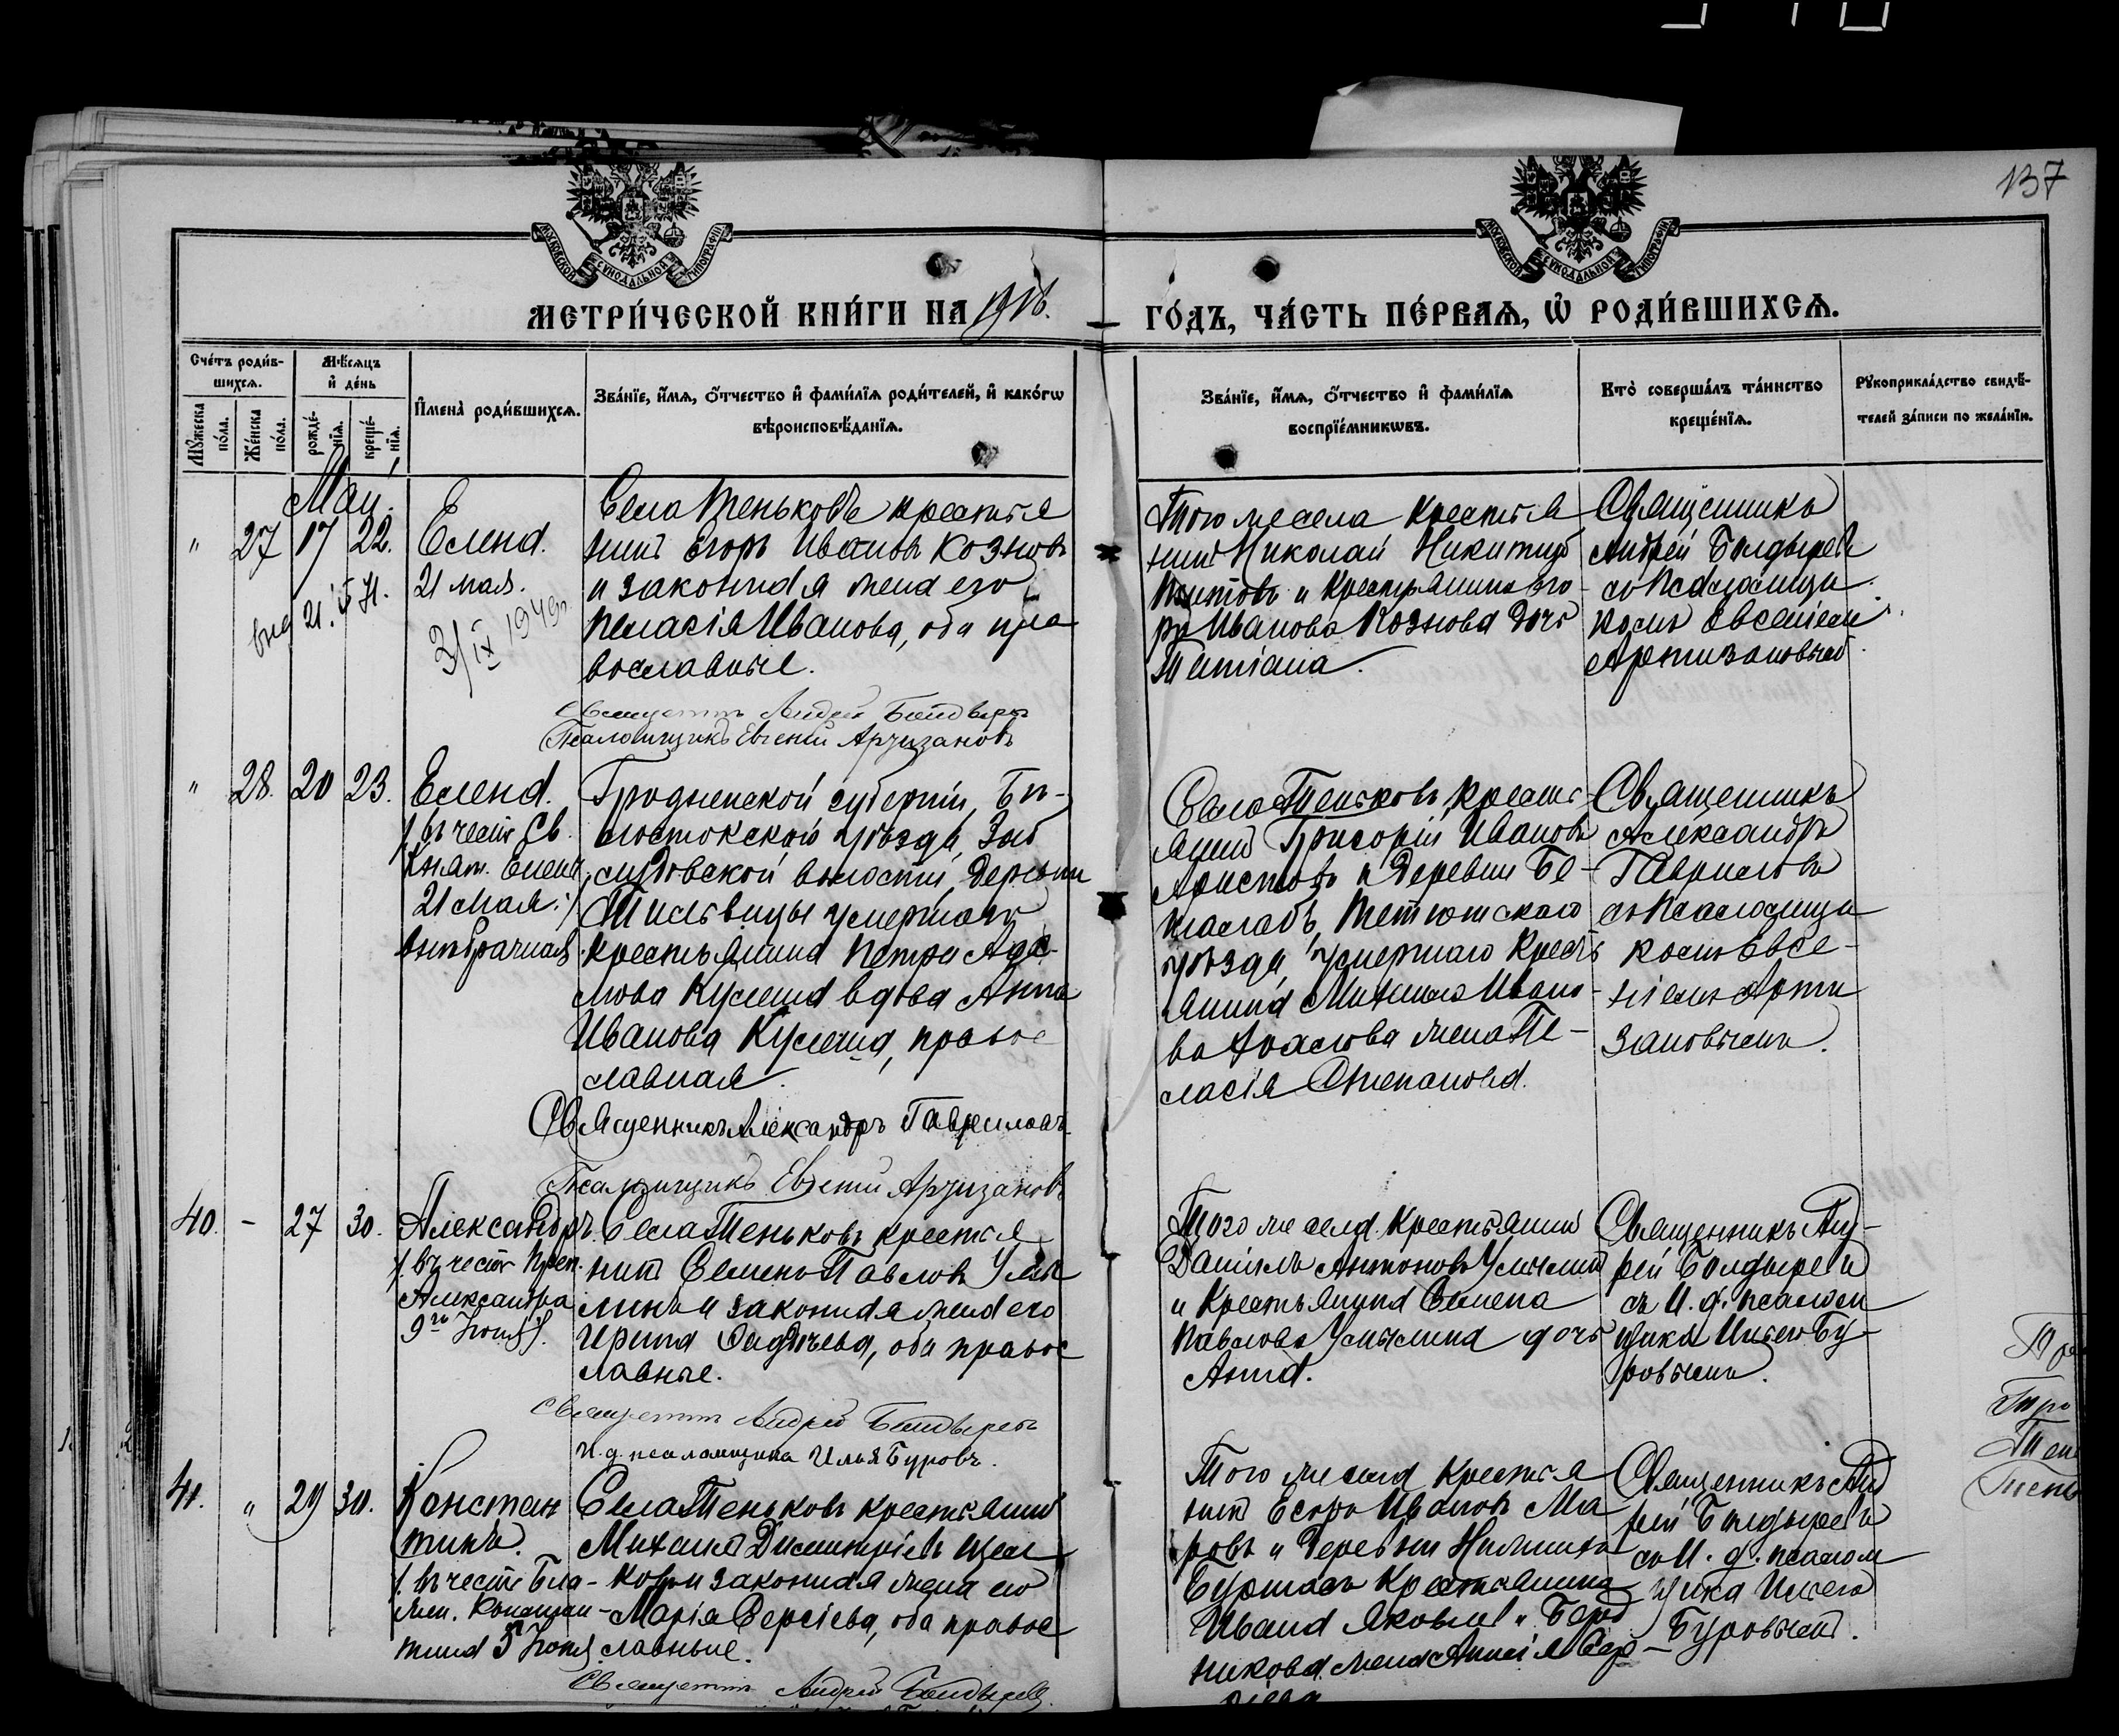 137
МОСКОВСКОЙ СѴНОДАЛЬНОЙ ТИПОГРАФІИ
МОСКОВСКОЙ СѴНОДАЛЬНОЙ ТИПОГРАФІИ
МЕТРИ́ЧЕСКОЙ КНИ́ГИ НА 1916. ГО́ДЪ, ЧА́СТЬ ПЕ́РВАѦ, Ѽ РОДИ́ВШИХСѦ.
Сче́тъ роди́в-
шихсѧ.
Мꙋ́жеска
по́ла.
Же́нска
по́ла.
Мѣ́сѧцъ
и҆ де́нь
рожде́-
нїѧ.
креще́-
нїѧ.
И҆мена̀ роди́вшихсѧ.
Зва́нїе, и҆́мѧ, о҆́тчество и҆ фами́лїѧ роди́телей, и҆ како́гѡ
вѣроисповѣ́данїѧ.
Зва́нїе, и҆́мѧ, о҆́тчество и҆ фами́лїѧ
воспрїе́мникѡвъ.
Кто̀ соверша́лъ та́инство
креще́нїѧ.
Рꙋкоприкла́дство свидѣ́-
телей за́писи по жела́нїю.
Май.
" 27 17 22.
Елена.
21 мая.
3/IX 1949г
Села Теньковъ крестья
нинъ Егоръ Ивановъ Козновъ
и законная жена его
Пелагія Иванова, оба пра
вославные.
Священникъ Андрей Болдыревъ
Псаломщикъ Евгеній Артизановъ
Того же села крестья
нинъ Николай Никитинъ
и крестьянина Его
ра Иванова Кознова дочь
Татіана.
Священникъ
Андрей Болдыревъ
съ псаломщи
комъ Евгеніемъ
Артизановымъ
" 28. 20 23.
Елена.
/. въ честь Св.
Елены
21 Мая./
внѣбрачная
Гродненской губерніи, Бѣ-
лостокскаго уѣзда, За
волости, деревни
умершаго
крестьянина Петра Ада
мова вдова Анна
Иванова, правос
лавная.
Священникъ Александръ Гавриловъ
Псаломщикъ Евгеній Артизановъ
Села Теньковъ, кресть
янинъ Григорій Ивановъ
Аристовъ и деревни Бе-
Тетюшскаго
уѣзда, умершаго крестъ
янина Михаила Ивано-
ва жена Пе-
лагія Степанова.
Священникъ
Александръ
Гавриловъ
съ псаломщи
комъ Евге-
ніемъ Арти
зановымъ.
40. - 27 30.
Александръ.
/. въ честь Преп.
Александра
9го Іюня./
Села Теньковъ крестья
нинъ Семенъ Павловъ Умы
линъ и законная жена его
Ирина Фадѣева, оба правос
лавные.
Священникъ Андрей Болдыревъ
И. д. псаломщика Илья Буровъ.
Того же села крестьянинъ
Даніилъ Антоновъ Умылинъ
и крестьянина Семена
Павлова Умылина дочь
Анна.
Священникъ Анд-
рей Болдыревъ
съ И. д. псалом
щика Ильею Бу-
ровымъ.
41. " 29 30.
Констан
тинъ.
/. въ честь Бла-
Констан-
тина 3 Іюня
Села Теньковъ крестьянинъ
Михаилъ Димитріевъ Щел
ковъ и законная жена его
Марія Сергіева, оба правос
лавные.
Священникъ Андрей Болдыревъ
Того же села крестья
нинъ Егоръ Ивановъ Ма
ровъ и деревни
крестьянина
Ивана Яковлева
никова жена Анисія Сер-
гіева
Священникъ Анд
рей Болдыревъ
съ И. д. псалом
щика Ильею
Буровымъ.